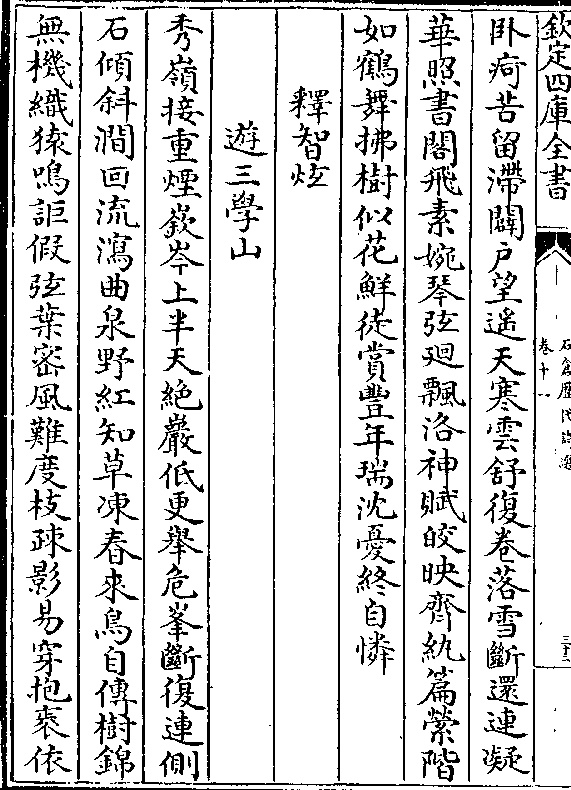 欽定四庫全書
石倉歷代詩選
卷十一
三十二
卧疴苦留滯闢户望遥天寒雲舒復卷落雪斷還連凝
華照書閣飛素婉琴弦廻飄洛神賦皎映齊紈篇縈階
如鶴舞拂樹似花鮮徒賞豐年瑞沈憂終自憐
釋智炫
遊三學山
秀嶺接重煙嶔岑上半天絶巖低更舉危峯斷復連側
石傾斜澗回流瀉曲泉野紅知草凍春來鳥自傳樹錦
無機織猿鳴詎假弦葉密風難度枝疎影易穿抱袠依